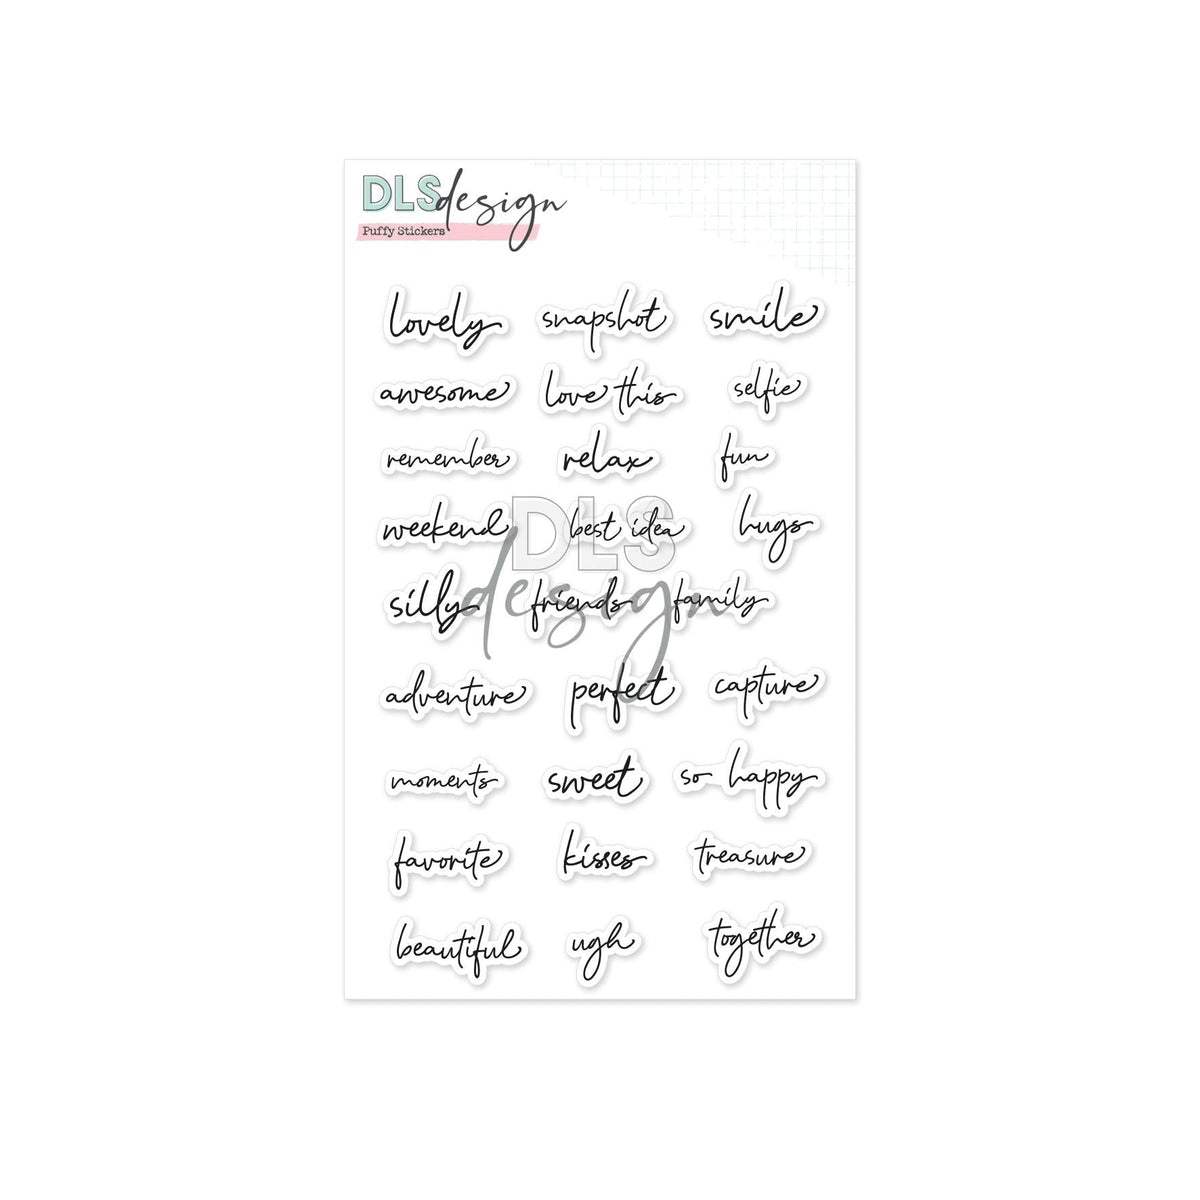 DLS design
Puffy Stickers
lovely snapshot smile
awesome love this selfie
remember relax fun
weekend best idea hugs
DLS
silly friends family
design
adventure perfect capture
moments sweet so happy
favorite kisses treasure
beautiful ugh together